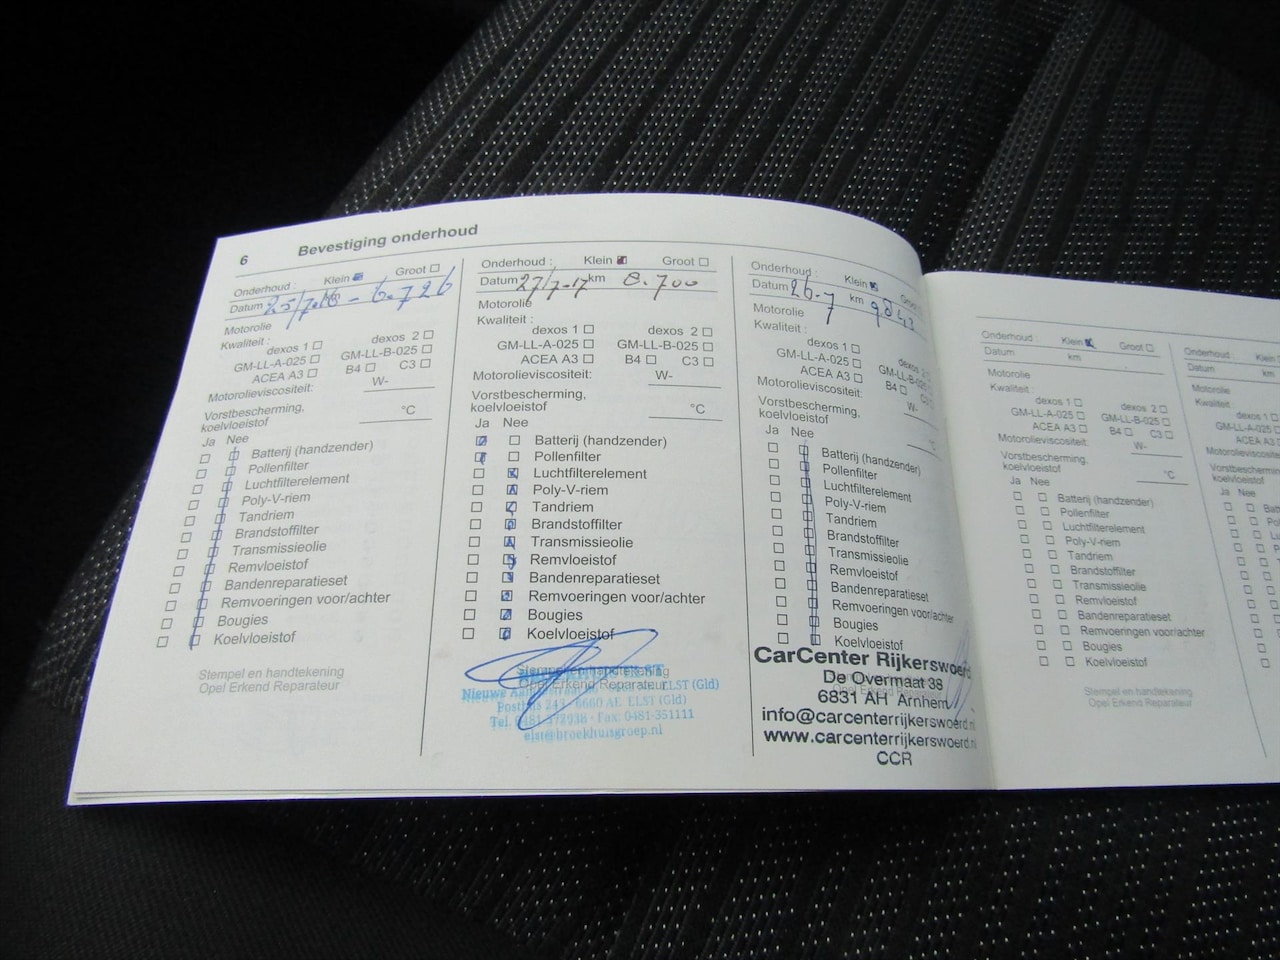 6 Bevestiging onderhoud
Onderhoud : Klein Groot
Datum 25/7-16 - 6.726
Motorolie
Kwaliteit :
dexos 1 dexos 2
GM-LL-A-025 GM-LL-B-025
ACEA A3 B4 C3
Motorolieviscositeit: W-
Vorstbescherming,
koelvloeistof °C
Ja Nee
Batterij (handzender)
Pollenfilter
Luchtfilterelement
Poly-V-riem
Tandriem
Brandstoffilter
Transmissieolie
Remvloeistof
Bandenreparatieset
Remvoeringen voor/achter
Bougies
Koelvloeistof
Stempel en handtekening
Opel Erkend Reparateur
Onderhoud : Klein Groot
Datum 27/7-17 km 8.700
Motorolie
Kwaliteit :
dexos 1 dexos 2
GM-LL-A-025 GM-LL-B-025
ACEA A3 B4 C3
Motorolieviscositeit: W-
Vorstbescherming,
koelvloeistof °C
Ja Nee
Batterij (handzender)
Pollenfilter
Luchtfilterelement
Poly-V-riem
Tandriem
Brandstoffilter
Transmissieolie
Remvloeistof
Bandenreparatieset
Remvoeringen voor/achter
Bougies
Koelvloeistof
Stempel en handtekening
Opel Erkend Reparateur
Nieuwe ELST (Gld)
6660 AE ELST (Gld)
Tel. Fax: 0481-351111
elst@broekhuisgroep.nl
Onderhoud : Klein
Datum 26-7 km
Motorolie
Kwaliteit :
dexos 1 dexos
GM-LL-A-025 GM-LL-B-025
ACEA A3 B4 C3
Motorolieviscositeit: W-
Vorstbescherming,
koelvloeistof
Ja Nee
Batterij (handzender)
Pollenfilter
Luchtfilterelement
Poly-V-riem
Tandriem
Brandstoffilter
Transmissieolie
Remvloeistof
Bandenreparatieset
Remvoeringen voor/achter
Bougies
Koelvloeistof
CarCenter Rijkerswoerd
De Overmaat 38
6831 AH Arnhem
info@carcenterrijkerswoerd.nl
www.carcenterrijkerswoerd.nl
CCR
Onderhoud : Klein Groot
Datum km
Motorolie
Kwaliteit :
dexos 1 dexos 2
GM-LL-A-025 GM-LL-B-025
ACEA A3 B4 C3
Motorolieviscositeit: W-
Vorstbescherming,
koelvloeistof °C
Ja Nee
Batterij (handzender)
Pollenfilter
Luchtfilterelement
Poly-V-riem
Tandriem
Brandstoffilter
Transmissieolie
Remvloeistof
Bandenreparatieset
Remvoeringen voor/achter
Bougies
Koelvloeistof
Stempel en handtekening
Opel Erkend Reparateur
Onderhoud : Klein
Datum km
Motorolie
Kwaliteit :
dexos 1
GM-LL-A-025
ACEA A3
Motorolieviscositeit:
Vorstbescherming,
koelvloeistof
Ja Nee